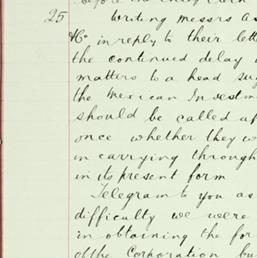 before the Chief Clerk
25 Writing messrs As
& Co in reply to their lett
the continued delay
matters to a head sug
the Mexican Investm
should be called up
once whether they w
in carrying through
in its present form
Telegram to you as
difficulty we were
in obtaining the for
of the Corporation bu